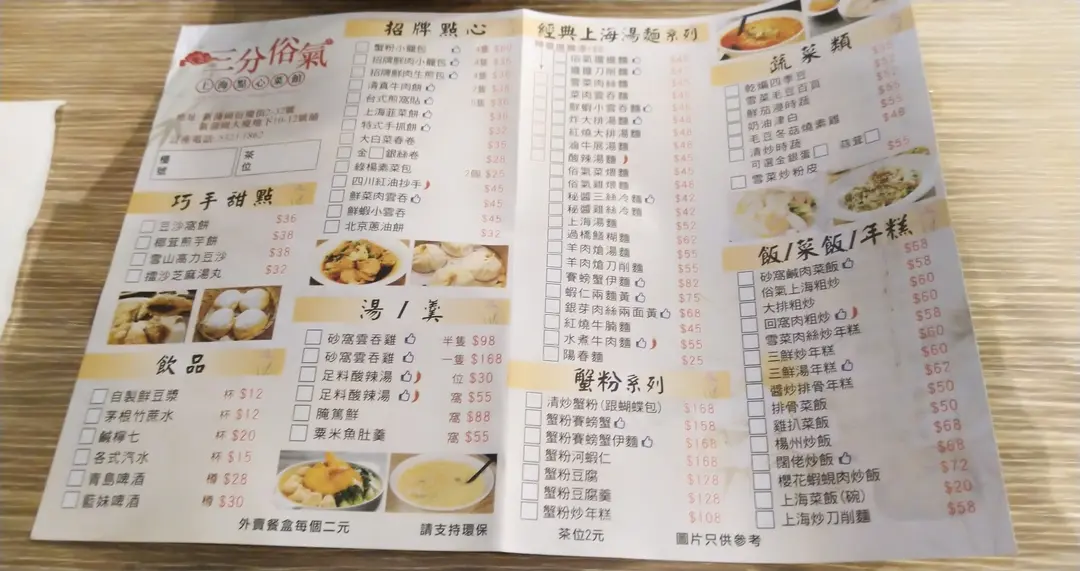 三分俗氣
上海點心菜館
樓號
茶位
巧手甜點
豆沙窩餅 $36
椰茸煎芋餅 $38
雪山高力豆沙 $38
擂沙芝麻湯丸 $32
飲品
自製鮮豆漿 杯 $12
茅根竹蔗水 杯 $12
鹹檸七 杯 $20
各式汽水 杯 $15
青島啤酒 樽 $28
藍妹啤酒 樽 $30
招牌點心
蟹粉小麵包
招牌鮮肉小麵包
招牌鮮肉生煎包
清真牛肉餅
台式煎窩貼
上海韮菜餅
特式手抓餅
大白菜春卷 $35
金 銀絲卷 $28
綠楊素菜包 2個 $25
四川紅油抄手 $45
鮮菜肉雲吞 $45
鮮蝦小雲吞 $45
北京蔥油餅 $32
湯/羹
砂窩雲吞雞 半隻 $98
砂窩雲吞雞 一隻 $168
足料酸辣湯 位 $30
足料酸辣湯 窩 $55
腌篤鮮 窩 $88
粟米魚肚羹 窩 $55
外賣餐盒每個二元
請支持環保
經典上海湯麵系列
雪菜肉絲麵
菜肉雲吞麵
鮮蝦小雲吞麵
炸大排湯麵
紅燒大排湯麵
滷牛展湯麵
酸辣湯麵 $45
俗氣菜煨麵 $45
俗氣雞煨麵 $48
秘醬三絲冷麵 $42
秘醬雞絲冷麵 $42
上海湯麵 $52
過橋鱔糊麵 $62
羊肉熗湯麵 $55
羊肉熗刀削麵 $55
賽螃蟹伊麵 $82
蝦仁兩麵黃 $75
銀芽肉絲兩面黃 $68
紅燒牛腩麵 $45
水煮牛肉麵 $55
陽春麵 $25
蟹粉系列
清炒蟹粉(跟蝴蝶包) $168
蟹粉賽螃蟹 $158
蟹粉賽螃蟹伊麵 $168
蟹粉河蝦仁 $168
蟹粉豆腐 $128
蟹粉豆腐羹 $128
蟹粉炒年糕 $108
茶位2元
圖片只供參考
蔬菜類
乾煸四季豆
雪菜毛豆百頁
鮮茄浸時蔬
奶油津白
毛豆冬菇燒素雞
清炒時蔬
可選金銀蛋 蒜茸 $55
雪菜炒粉皮 $48
飯/菜飯/年糕
砂窩鹹肉菜飯 $68
俗氣上海粗炒 $58
大排粗炒 $60
回窩肉粗炒 $60
雪菜肉絲炒年糕 $58
三鮮炒年糕 $60
三鮮湯年糕 $60
醬炒排骨年糕 $62
排骨菜飯 $50
雞扒菜飯 $50
楊州炒飯 $68
闊佬炒飯 $68
櫻花蝦蜆肉炒飯 $72
上海菜飯(碗) $20
上海炒刀削麵 $58